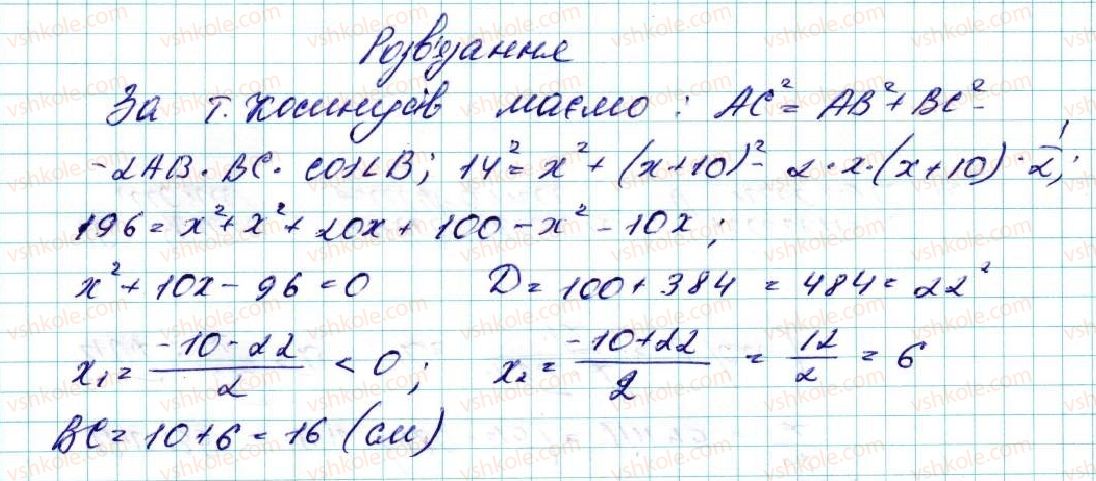 Розв'язання
За т. косинусів маємо: AC² = AB² + BC² -
- 2AB · BC · cos∠B; 14² = x² + (x+10)² - 2 · x · (x+10) · 1/2;
196 = x² + x² + 20x + 100 - x² - 10x;
x² + 10x - 96 = 0 D = 100 + 384 = 484 = 22²
x₁ = (-10-22)/2 < 0; x₂ = (-10+22)/2 = 12/2 = 6
BC = 10 + 6 = 16 (см)